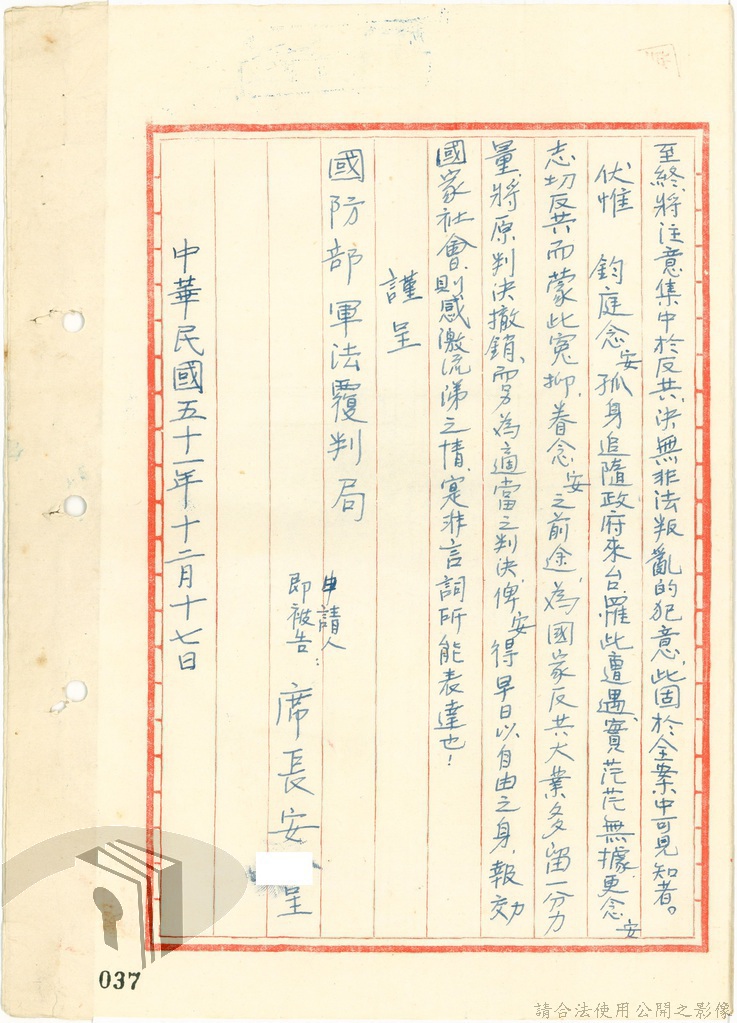 至終將注意集中於反共,決無非法叛亂的犯意,此固於全案中可見知者。
伏惟 鈞庭念安孤身追隨政府來台,罹此遭遇,實茫茫無據,更念安
志切反共而蒙此冤抑,眷念安之前途,為國家反共大業多留一分力
量,將原判決撤銷,而另為適當之判決,俾安得早日以自由之身,報効
國家社會,則感激流涕之情,寔非言詞所能表達也!
謹呈
國防部軍法覆判局
申請人
即被告:席長安 呈
中華民國五十一年十二月十七日
037
請合法使用公開之影像